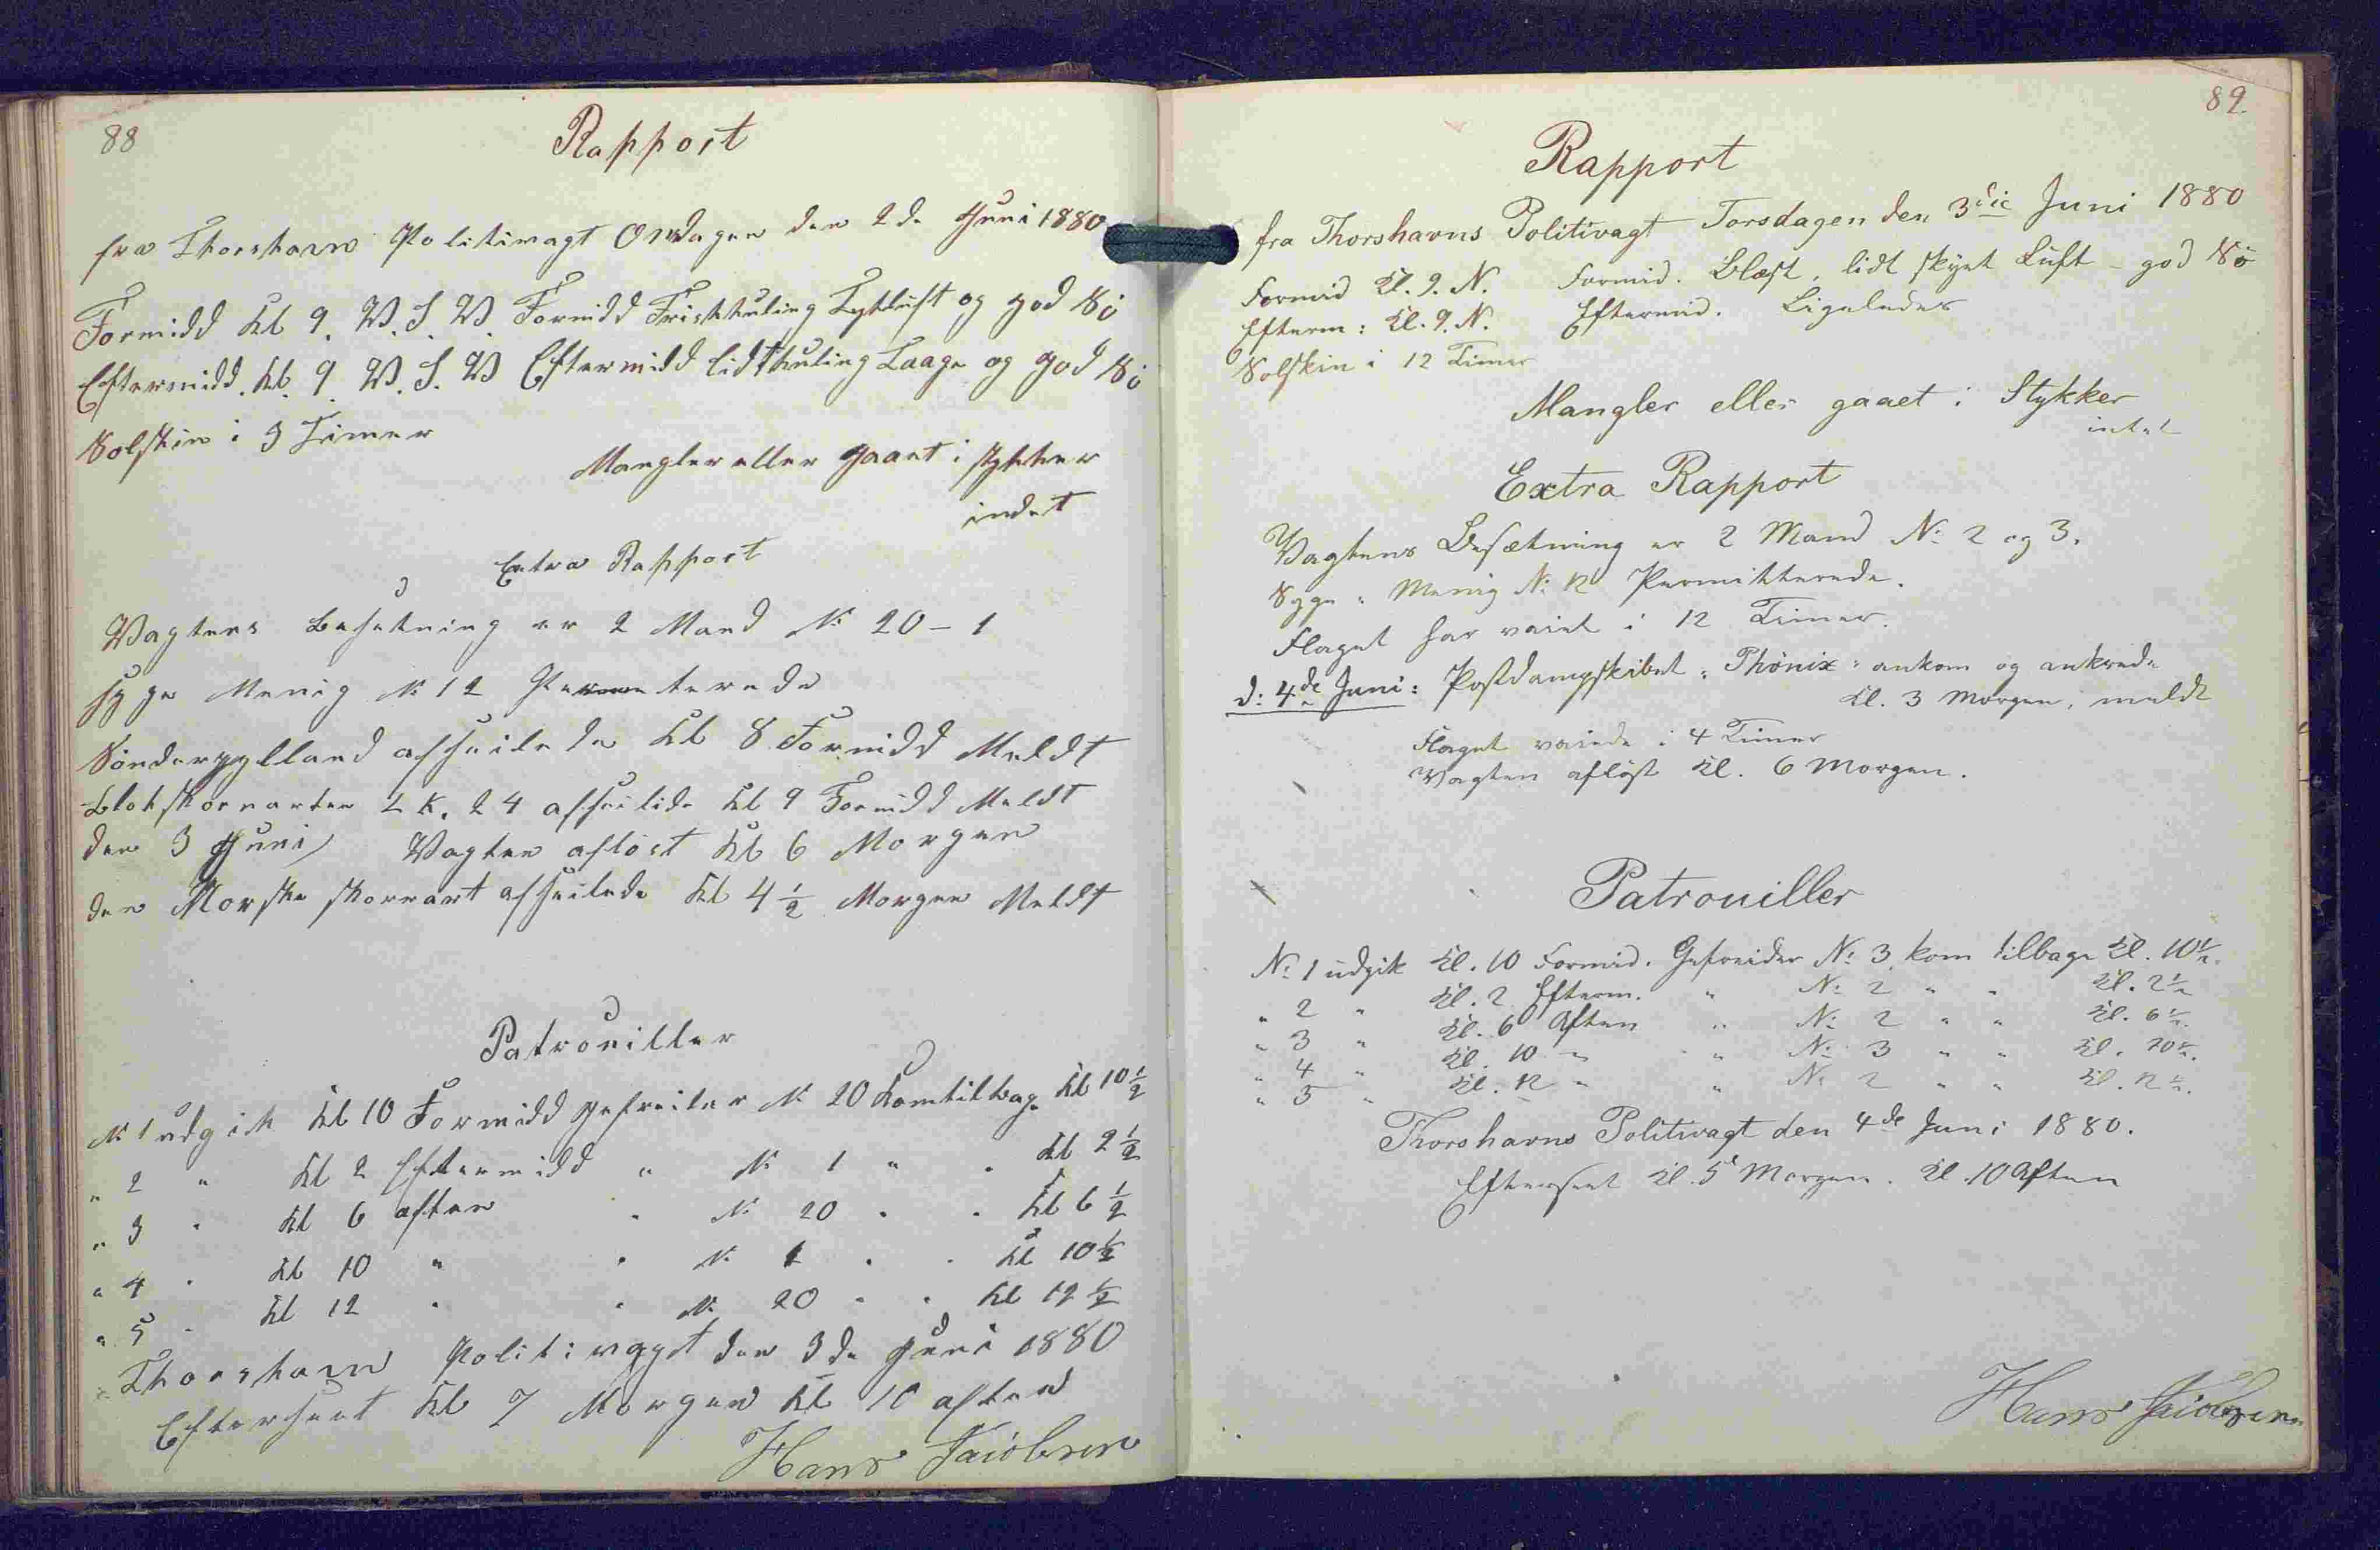 88
Rapport
fra Thorshavn Politivagt Onsdagen den 2de Juni 1880
Formidd Kl 9. V. S. V. Formidd Friskkuling Tykluft og god Sö
Eftermidd. Kl. 9. V. S. V Eftermidd lidt kuling Taage og god Sö
Solskin i 3 Timer
Mangler eller gaaet i stykker
indet
Extra Rapport
Vagtens Besetning er 2 Mand No 20 - 1
syge Menig No 12
Sönderjylland afseilede Kl 8 Formidd Meldt
L K. 24 afseilede Kl 9 Formidd Meldt
den 3 Juni Vagten aflöst Kl 6 Morgen
den Norske afseilede Kl 4 1/2 Morgen Meldt
Patrouiller
No 1 udgik Kl 10 Formidd gefreiter No 20 Kom tilbage Kl 10 1/2
" 2 " Kl 2 Eftermidd " No 1 " " Kl 2 1/2
" 3 " Kl 6 aften " No 20 " " Kl 6 1/2
" 4 " Kl 10 " " No 1 " " Kl 10 1/2
" 5 " Kl 12 " " No 20 " " Kl 12 1/2
Thorshavn Politivagt den 3de Juni 1880
Efterseet Kl 7 Morgen Kl 10 aften
Hans Jacobsen
89.
Rapport
fra Thorshavns Politivagt Torsdagen den 3die Juni 1880
Formid Kl. 9. N. Formid. Blæst, lidt skyet Luft - god Sö
Efterm: Kl. 9. N. Eftermid. Ligeledes
Solskin i 12 Timer
Mangler eller gaaet i Stykker
intet
Extra Rapport
Vagtens Besætning er 2 Mand No 2 og 3.
Syge: Menig No 12 Permitterede.
Flaget har vaiet i 12 Timer.
d: 4de Juni: Postdampskibet "Phönix" ankom og ankrede
Kl. 3 Morgen, meldt
Flaget vaiede i 4 Timer
Vagten aflöst Kl. 6 Morgen.
Patrouiller
No 1 udgik Kl. 10 Formid. Gefreider No 3. kom tilbage Kl. 10 1/2.
" 2 " Kl. 2 Efterm. " No 2 " " Kl. 2 1/2
" 3 " Kl. 6 Aften " No 2 " " Kl. 6 1/2.
" 4 " Kl. 10 " " No 3 " " Kl. 10 1/2.
" 5 " Kl. 12 " " No 2 " " Kl. 12 1/2.
Thorshavns Politivagt den 4de Juni 1880.
Efterseet Kl. 5 Morgen. Kl. 10 Aften
Hans Jacobsen